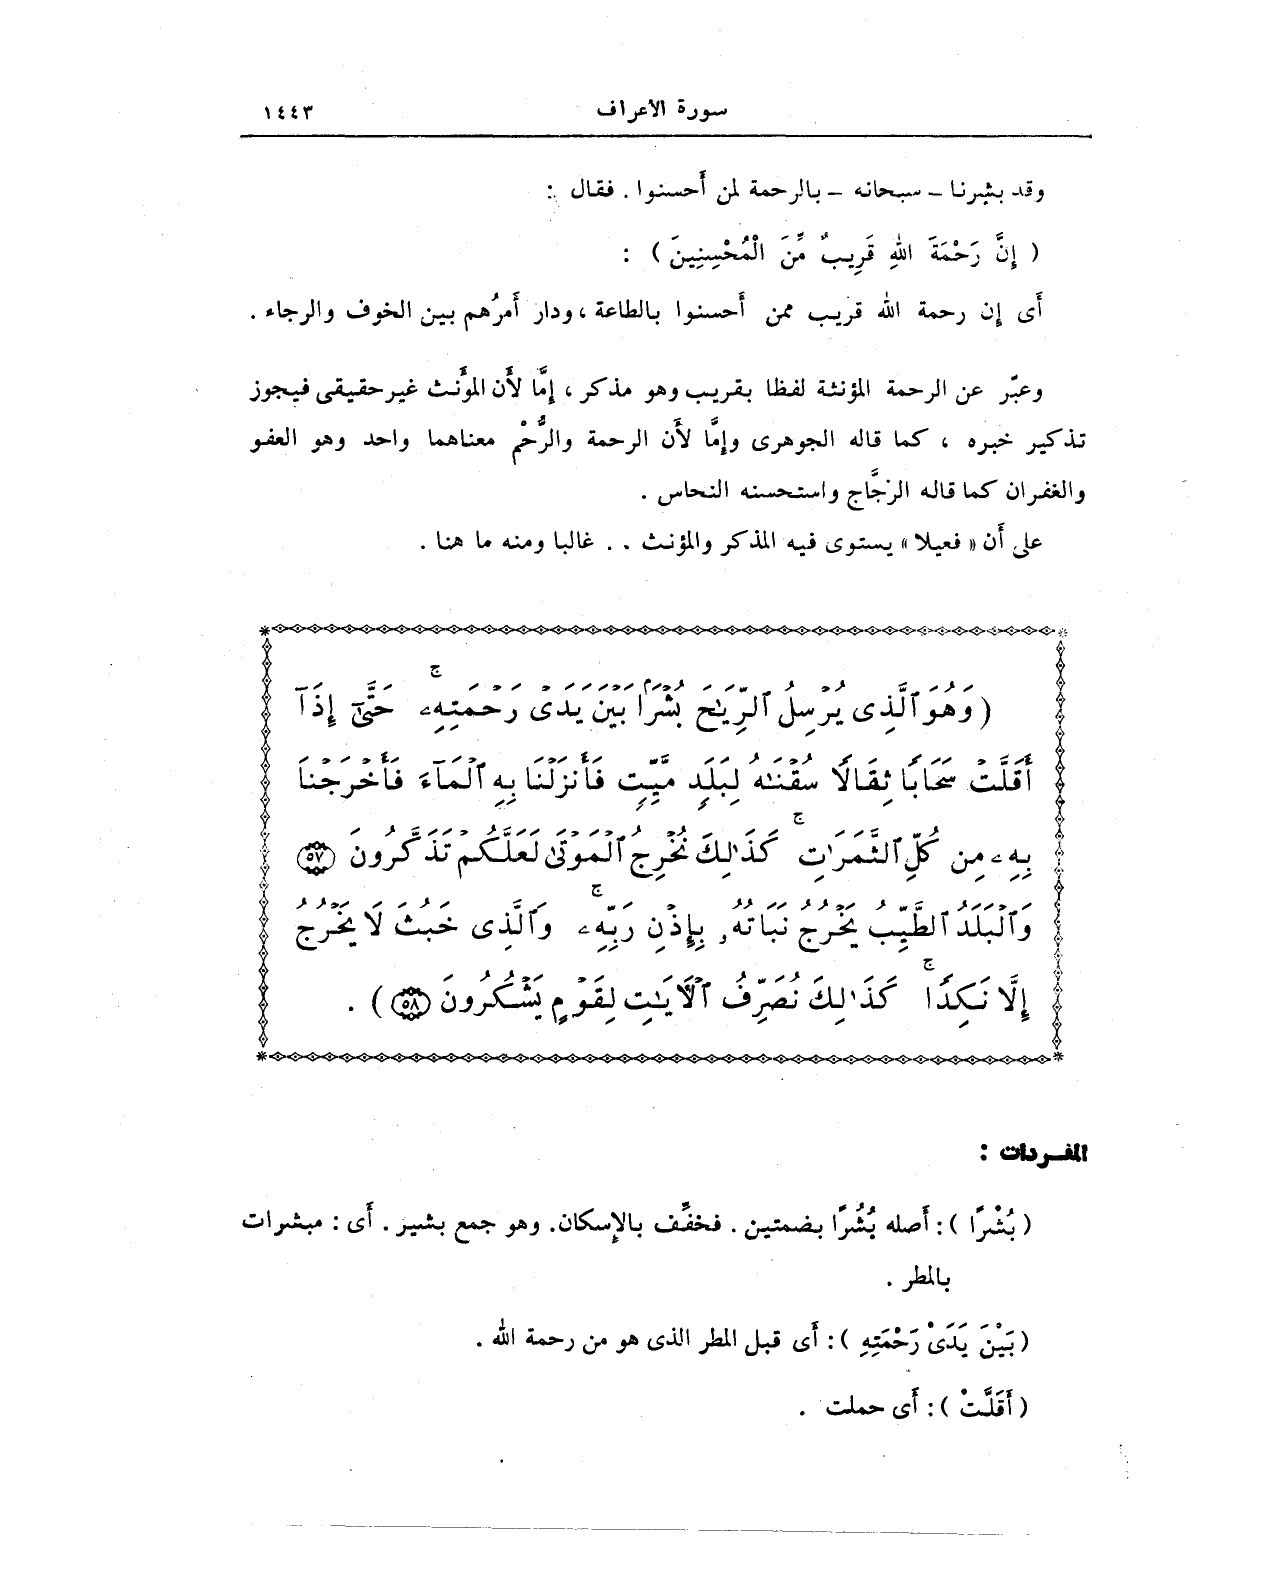 سورة الأعراف ١٤٤٣
وقد بشرنا – سبحانه – بالرحمة لمن أحسنوا . فقال :
( إِنَّ رَحْمَةَ اللهِ قَرِيبٌ مِّنَ الْمُحْسِنِينَ ) :
أى إن رحمة الله قريب ممن أحسنوا بالطاعة ، ودار أمرُهم بين الخوف والرجاء .
وعبّر عن الرحمة المؤنثة لفظا بقريب وهو مذكر ، إمَّا لأن المؤنث غير حقيقى فيجوز
تذكير خبره ، كما قاله الجوهرى وإمَّا لأن الرحمة والرُّحْم معناهما واحد وهو العفو
والغفران كما قاله الزجَّاج واستحسنه النحاس .
على أن « فعيلا » يستوى فيه المذكر والمؤنث . . غالبا ومنه ما هنا .
( وَهُوَ ٱلَّذِى يُرْسِلُ ٱلرِّيَٰحَ بُشْرًۢا بَيْنَ يَدَىْ رَحْمَتِهِۦ ۚ حَتَّىٰٓ إِذَآ
أَقَلَّتْ سَحَابًا ثِقَالًا سُقْنَٰهُ لِبَلَدٍ مَّيِّتٍ فَأَنزَلْنَا بِهِ ٱلْمَآءَ فَأَخْرَجْنَا
بِهِۦ مِن كُلِّ ٱلثَّمَرَٰتِ ۚ كَذَٰلِكَ نُخْرِجُ ٱلْمَوْتَىٰ لَعَلَّكُمْ تَذَكَّرُونَ ٥٧
وَٱلْبَلَدُ ٱلطَّيِّبُ يَخْرُجُ نَبَاتُهُۥ بِإِذْنِ رَبِّهِۦ ۚ وَٱلَّذِى خَبُثَ لَا يَخْرُجُ
إِلَّا نَكِدًا ۚ كَذَٰلِكَ نُصَرِّفُ ٱلْءَايَٰتِ لِقَوْمٍ يَشْكُرُونَ ٥٨ ) .
المفردات :
( بُشْرًا ) : أصله بُشُرًا بضمتين . فخفِّف بالإسكان. وهو جمع بشير . أى : مبشرات
بالمطر .
( بَيْنَ يَدَىْ رَحْمَتِهِ ) : أى قبل المطر الذى هو من رحمة الله .
( أَقَلَّتْ ) : أى حملت .